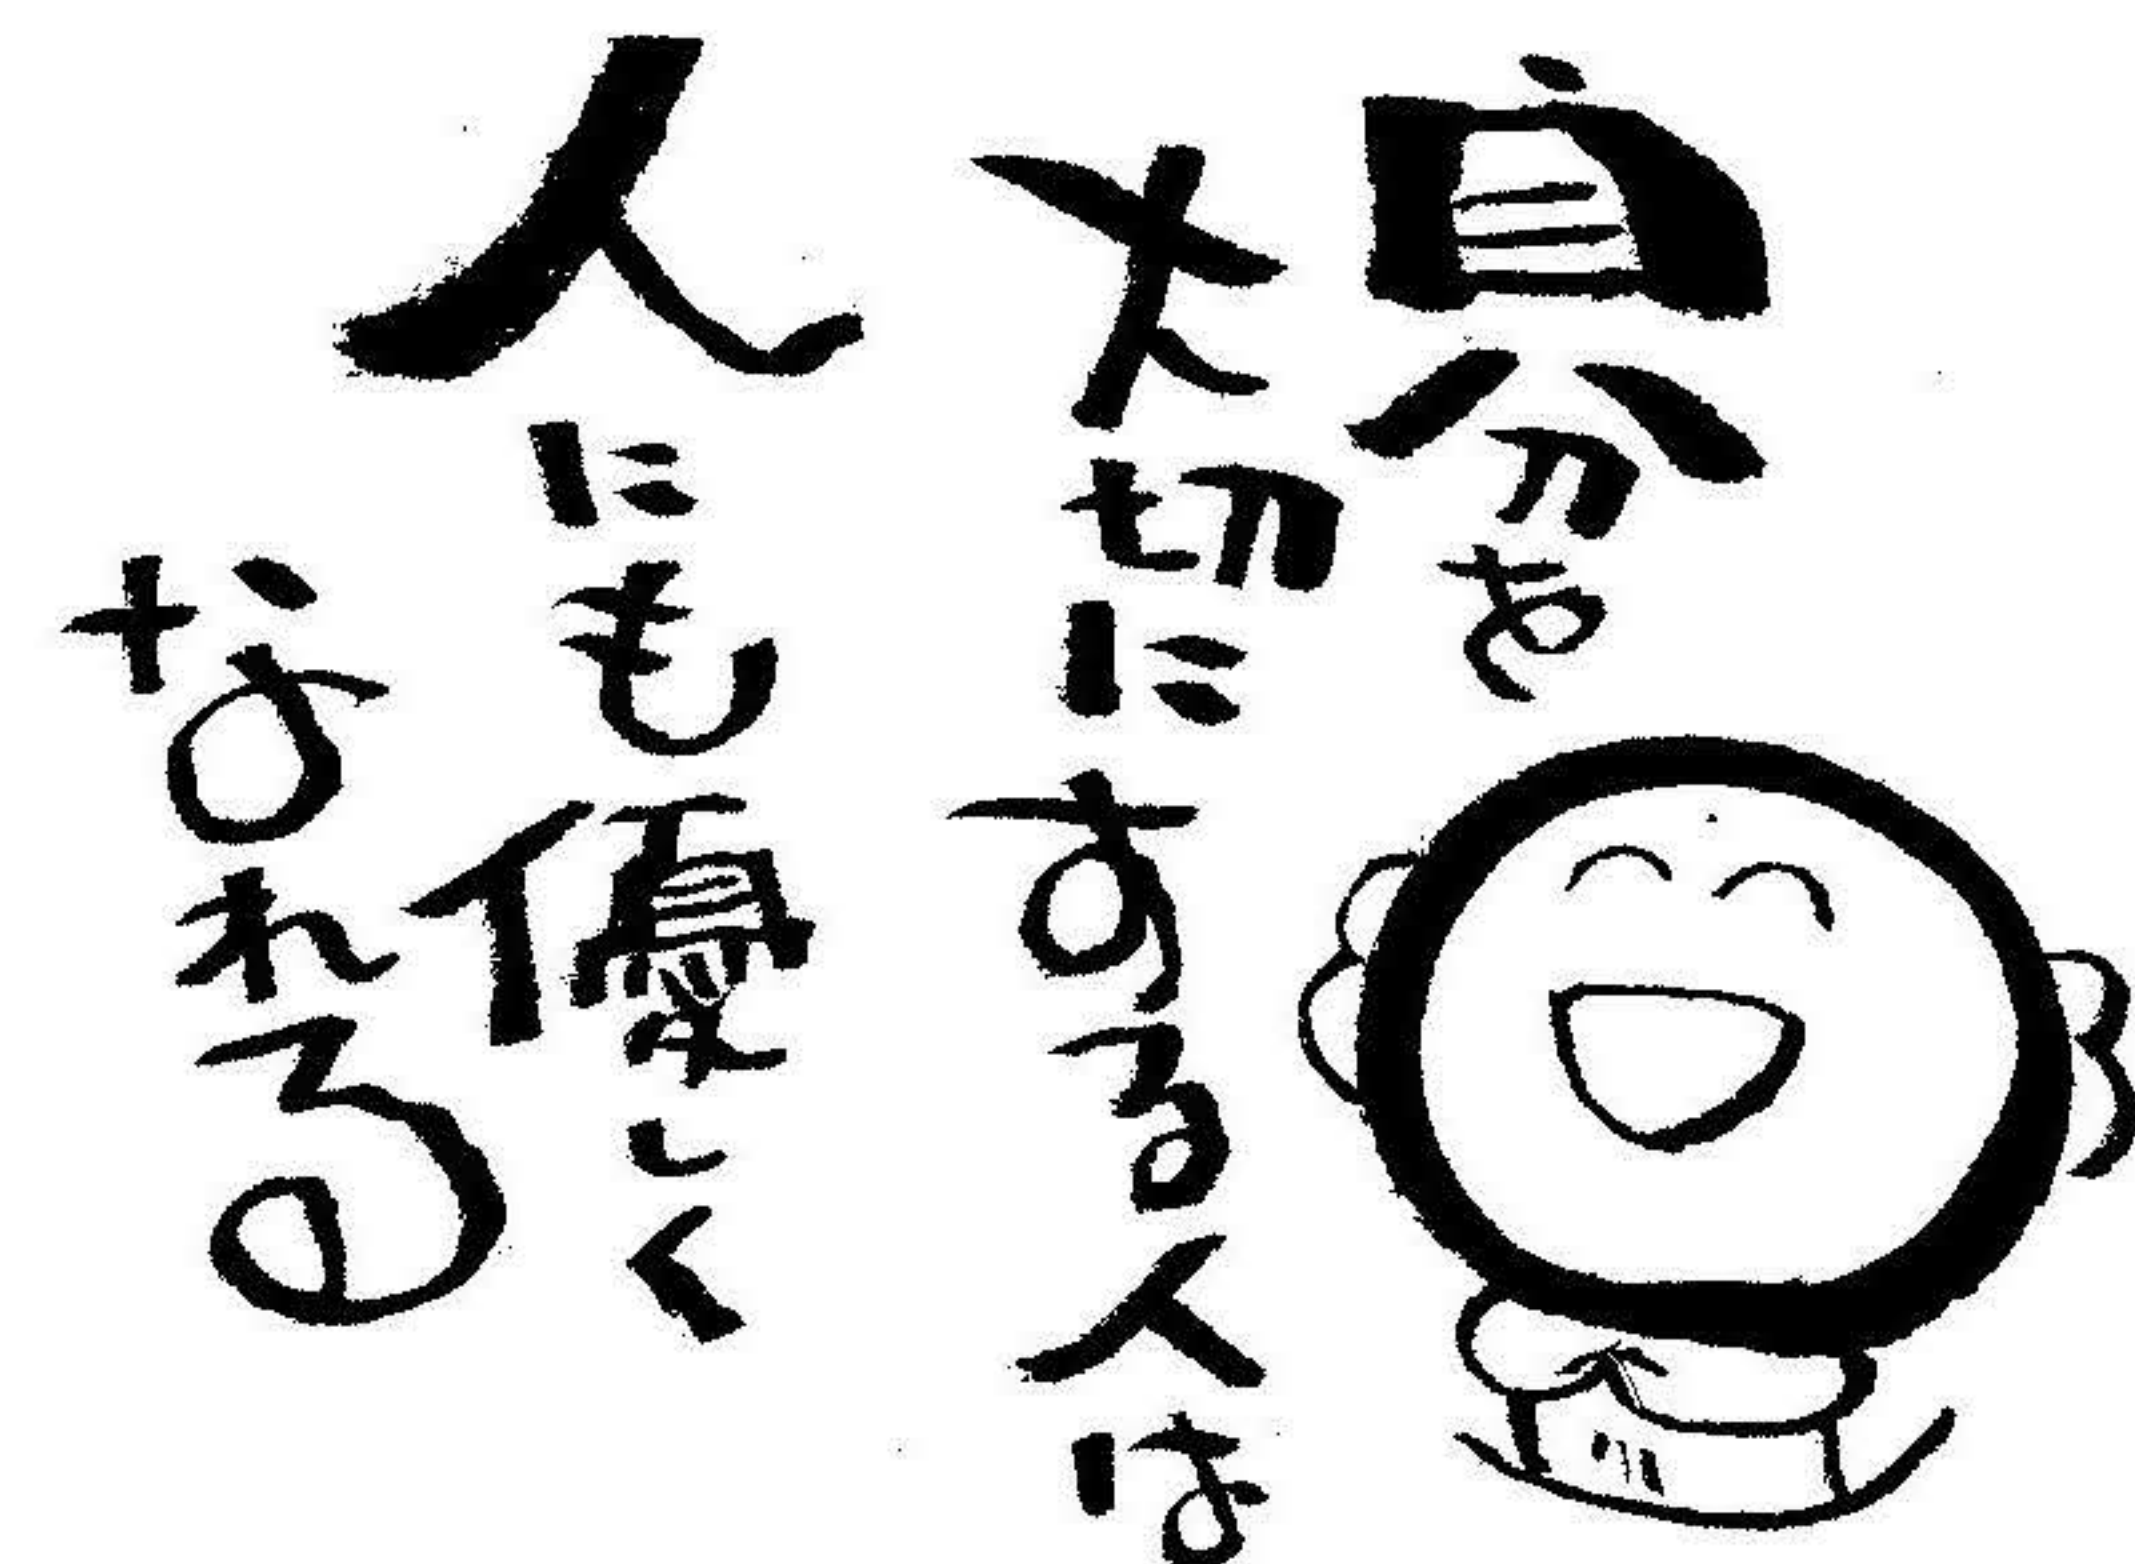 自分を
大切にする人は
人にも優しく
なれる